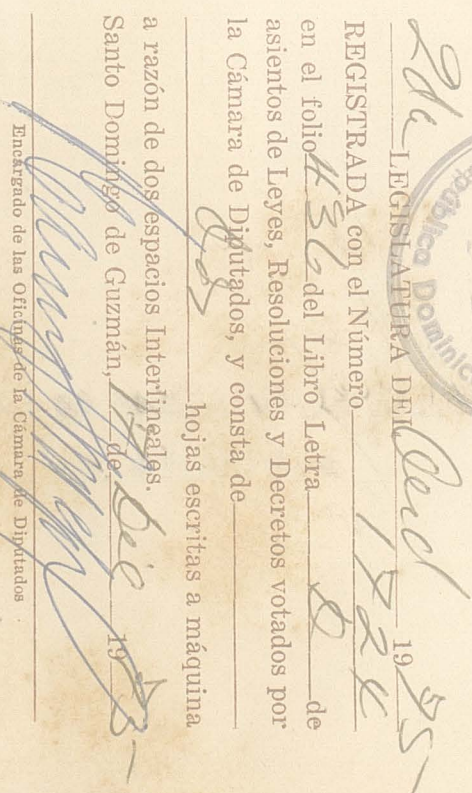 2da LEGISLATURA DEL Ord 1975-
REGISTRADA con el Número 1824
en el folio 436 del Libro Letra D de
asientos de Leyes, Resoluciones y Decretos votados por
la Cámara de Diputados, y consta de
dos hojas escritas a máquina
a razón de dos espacios Interlineales.
Santo Domingo de Guzmán, de Dic 19
Encargado de las Oficinas de la Cámara de Diputados
República Dominic